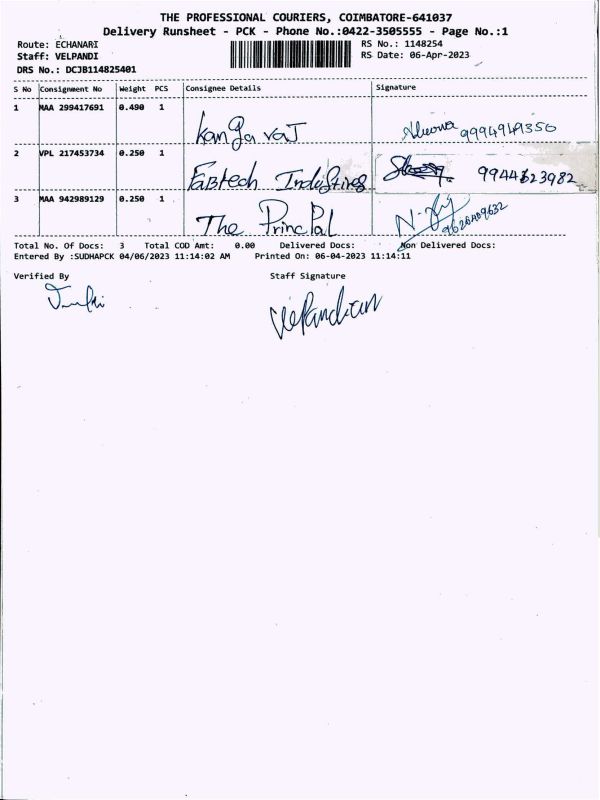 THE PROFESSIONAL COURIERS, COIMBATORE-641037
Delivery Runsheet - PCK - Phone No.:0422-3505555 - Page No.:1
Route: ECHANARI RS No.: 1148254
Staff: VELPANDI RS Date: 06-Apr-2023
DRS No.: DCJB114825401
S No Consignment No Weight PCS Consignee Details Signature
1 MAA 299417691 0.490 1
KanGa raJ 9994949350
2 VPL 217453734 0.250 1
FaBtech InduStires 9944623982
3 MAA 942989129 0.250 1
The PrincPal 9626409632
Total No. Of Docs: 3 Total COD Amt: 0.00 Delivered Docs: Non Delivered Docs:
Entered By :SUDHAPCK 04/06/2023 11:14:02 AM Printed On: 06-04-2023 11:14:11
Verified By Staff Signature
VelPandian